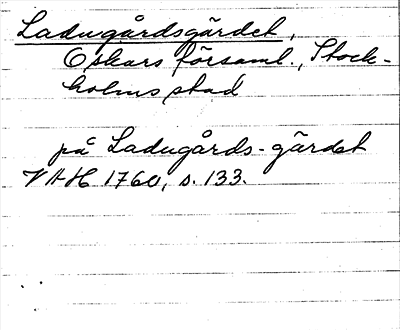 Ladugårdsgärdet,
Oskars församl., Stock-
holms stad
på Ladugårds-gärdet
VAH 1760, s. 133.